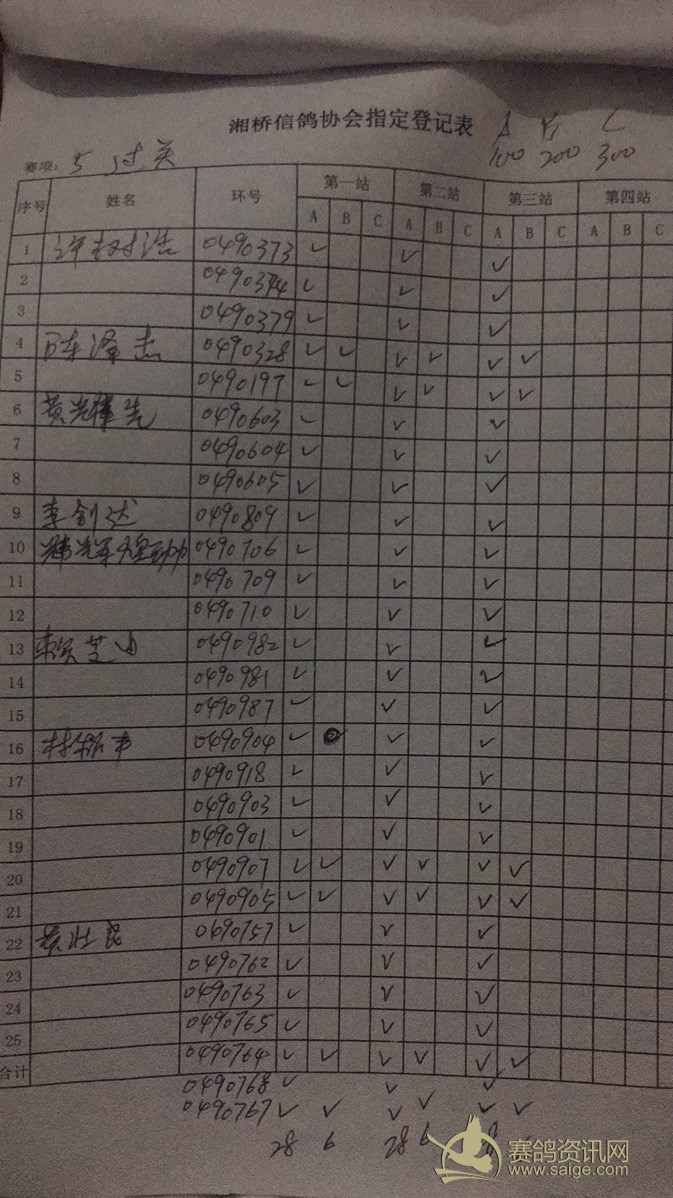 湘桥信鸽协会指定登记表 A B C
赛项: 5 过关 100 200 300
序号 姓名 环号 第一站 第二站 第三站 第四站
A B C A B C A B C A B C
1 0490373 ✓ ✓ ✓
2 0490374 ✓ ✓ ✓
3 0490379 ✓ ✓ ✓
4 陈泽杰 0490328 ✓ ✓ ✓ ✓ ✓ ✓
5 0490197 ✓ ✓ ✓ ✓ ✓ ✓
6 0490603 ✓ ✓ ✓
7 0490604 ✓ ✓ ✓
8 0490605 ✓ ✓ ✓
9 李创达 0490809 ✓ ✓ ✓
10 0490706 ✓ ✓ ✓
11 0490709 ✓ ✓ ✓
12 0490710 ✓ ✓ ✓
13 0490982 ✓ ✓ ✓
14 0490981 ✓ ✓ ✓
15 0490987 ✓ ✓ ✓
16 0490904 ✓ ✓ ✓
17 0490918 ✓ ✓ ✓
18 0490903 ✓ ✓ ✓
19 0490901 ✓ ✓ ✓
20 0490907 ✓ ✓ ✓ ✓ ✓ ✓
21 0490905 ✓ ✓ ✓ ✓ ✓ ✓
22 黄壮民 0690757 ✓ ✓ ✓
23 0490762 ✓ ✓ ✓
24 0490763 ✓ ✓ ✓
25 0490765 ✓ ✓ ✓
合计 0490764 ✓ ✓ ✓ ✓ ✓ ✓
0490768 ✓ ✓ ✓
0490767 ✓ ✓ ✓ ✓ ✓ ✓
28 6 28 6
赛鸽资讯网
www.saige.com